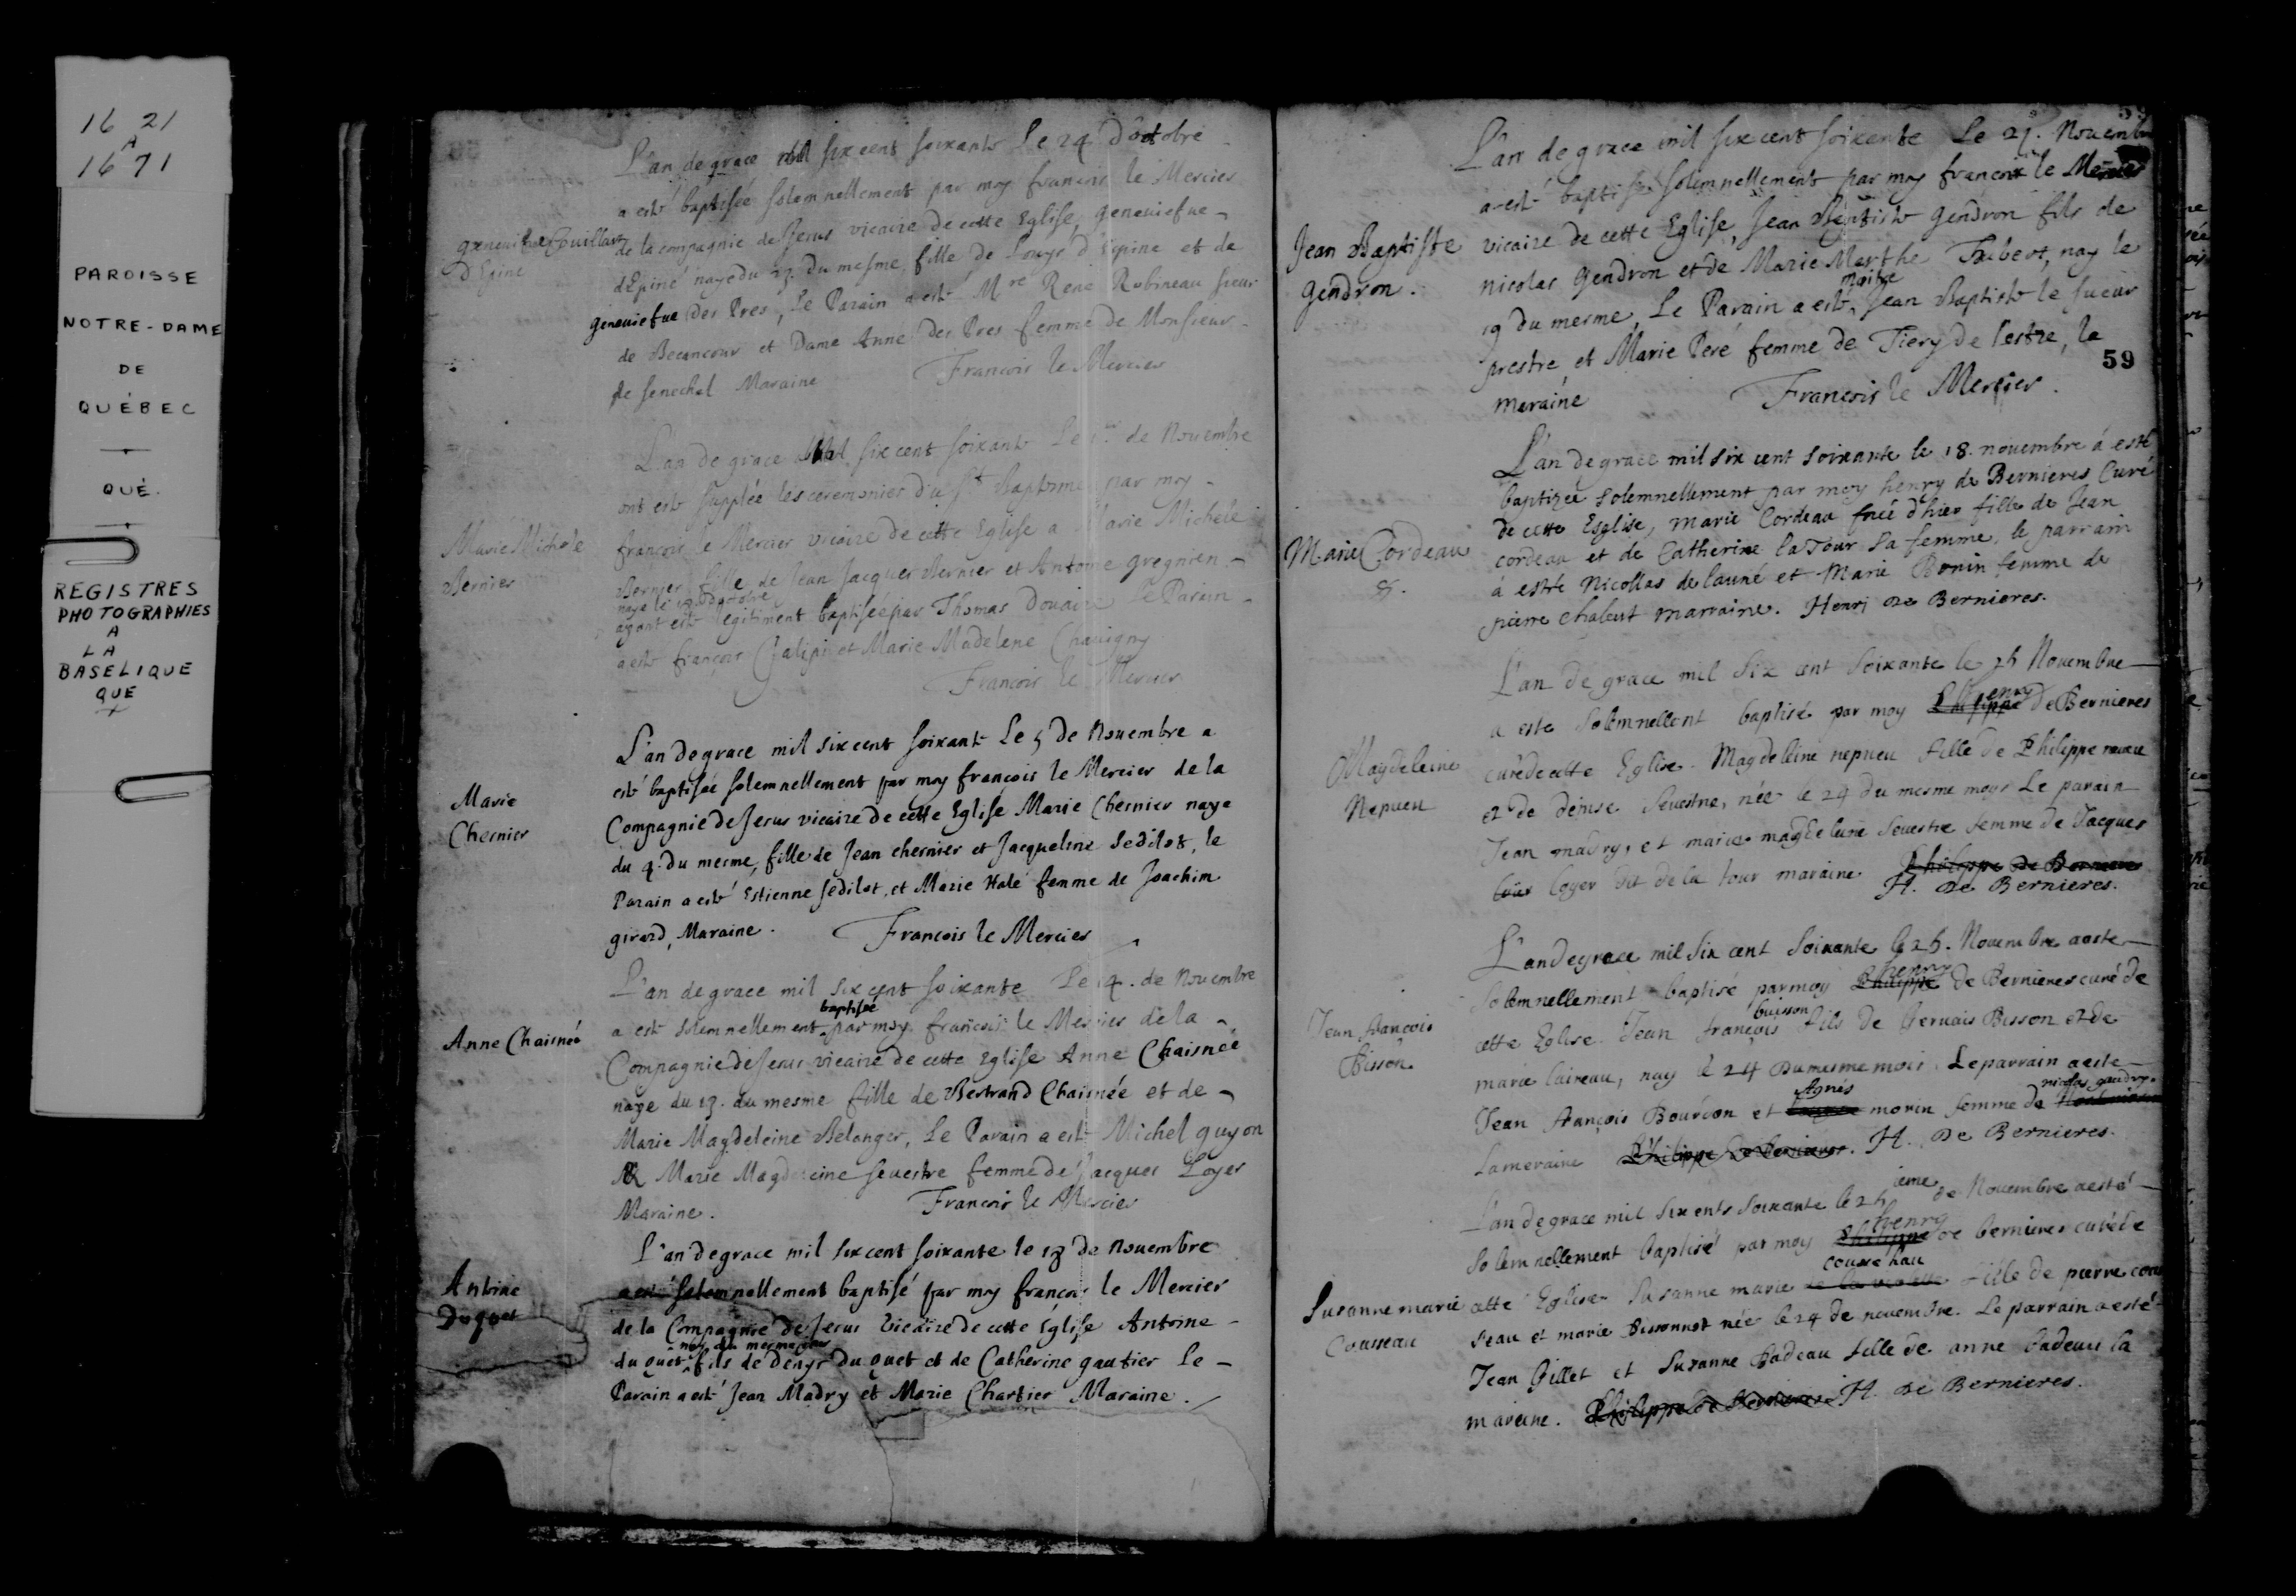 16 21
A
16 71
PAROISSE
NOTRE-DAME
DE
QUÉBEC
QUÉ.
REGISTRES
PHOTOGRAPHIES
A
LA
BASELIQUE
QUE
L'an de grace mil six cent soixante Le 24 d'octobre
a esté baptisée solemnellement par moy francois le Mercier
geneuiefue Couillard
d'Epine
de la compagnie de Jesus vicaire de cette Eglise, geneuiefue
d'Epiné naye du 23. du mesme, fille de Louys d'Epine et de
geneuiefue des Pres, Le Parain a esté Mre René Robineau sieur
de Becancour et Dame Anne des Pres femme de Monsieur
le senechal Maraine
Francois le Mercier
L'an de grace mil six cent soixante Le 1er de Nouembre
ont esté supplée les ceremonies du St Baptesme par moy
Marie Michele
Bernier
francois le Mercier vicaire de cette Eglise a Marie Michele
Bernier fille de Jean Jacques Bernier et Antoine gregnien
naye le octobre
ayant esté legitiment baptisée par Thomas Douaire Le Parain
a esté françois et Marie Madelene Chauigny
Francois le Mercier
L'an de grace mil six cent soixante Le 5 de Nouembre a
esté baptisée solemnellement par moy françois le Mercier de la
Marie
Chernier
Compagnie de Jesus vicaire de cette Eglise Marie Chernier naye
du 4. du mesme, fille de Jean chernier et Jacqueline Sedilot, le
Parain a esté Estienne sedilot, et Marie Halé femme de Joachim
girard, Maraine.
Francois le Mercier
L'an de grace mil six cent soixante Le 14. de Nouembre
baptisée
a esté solemnellement par moy francois le Mercier de la
Anne Chaisnée
Compagnie de Jesus vicaire de cette Eglise Anne Chaisnée
naye du 13. du mesme fille de Bertrand Chaisnée et de
Marie Magdeleine Belanger, Le Parain a esté Michel guyon
& Marie Magdeleine seuestre femme de Jacques Loyer
Maraine.
Francois le Mercier
L'an de grace mil six cent soixante le 18 de nouembre
Antoine
Duquet
a esté solemnellement baptisé par moy francois le Mercier
de la Compagnie de Jesus Vicaire de cette Eglise Antoine
nay du mesme
du quet fils de Denys du quet et de Catherine gautier Le
Parain a esté Jean Madry et Marie Chartier Maraine.
59
L'an de grace mil six cent soixante Le 21. Nouembre
a esté baptisé solemnellement par moy francois le Mercier
Jean Baptiste
Gendron.
vicaire de cette Eglise, Jean Baptiste Gendron fils de
nicolas Gendron et de Marie Marthe Hubert, nay le
maitre
19 du mesme, Le Parain a esté, Jean Baptiste le sueur
prestre et Marie Peré femme de Tiery de lestre, la
59
meraine
Francois le Mercier.
L'an de grace mil six cent soixante le 18. nouembre a esté
baptizée solemnellement par moy henry de Bernieres Curé
Marie Cordeau
8.
de cette Esglise, Marie Cordeau née d'hier fille de Jean
cordeau et de Catherine la Tour sa femme, le parrain
á estré Nicollas de launé et Marie Bonin femme de
pierre chalout marraine. Henri de Bernieres.
L'an de grace mil six cent soixante le 25 Nouembre
henry
a esté solemnellent baptisé par moy Philippe de Bernieres
Magdeleine
Nepueu
curé de cette Eglise. Magdeleine nepueu fille de Philippe
et de denise Seuestre, née le 24 du mesme moys Le parain
Jean madry, et marie magdeleine Seuestre femme de Jacques
loyer dit de la tour maraine Philippe de Bernieres
H. de Bernieres.
L'an de grace mil six cent soixante le 25. Nouembre a esté
henry
solemnellement baptisé par moy Philippe de Bernieres curé de
buisson
Jean francois
Bisson.
cette Eglise. Jean françois fils de Geruais Bisson et de
marie laireau, nay le 24 du mesme mois. Le parrain a esté
Agnés
nicolas gaudry.
Jean françois Bourdon et morin femme de
La meraine Philippe de Bernieres. H. De Bernieres.
L'an de grace mil six cents soixante le 25 ieme de Nouembre a esté
henry
solemnellement baptisé par moy Philippe de bernieres curé de
Susanne marie
Cousseau
cette Eglise Susanne marie fille de pierre cous
seau et marie Bissonnet née le 24 de nouembre. Le parrain a esté
Jean Gillet et Susanne Badeau fille de anne badeau la
maraine. Philippe de Bernieres H. de Bernieres.